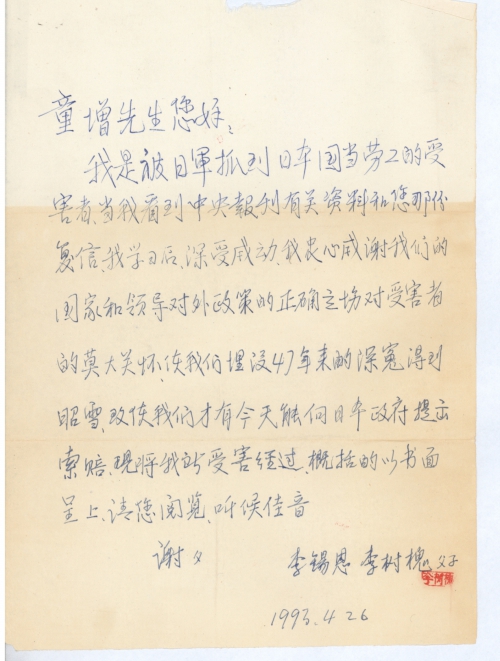 童增先生您好：
我是被日軍抓到日本国当劳工的受
害者、当我看到中央報刊有关资料和您那份
复信、我学习后、深受感动、我衷心感谢我们的
国家和领导对外政策的正确立场对受害者
的莫大关怀、使我们埋没47年来的深冤得到
昭雪、致使我们才有今天能向日本政府提出
索赔、现将我所受害经过、概括的以书面
呈上、请您阅览、听候佳音
谢々
李锡恩 李树槐 父子
1993.4.26